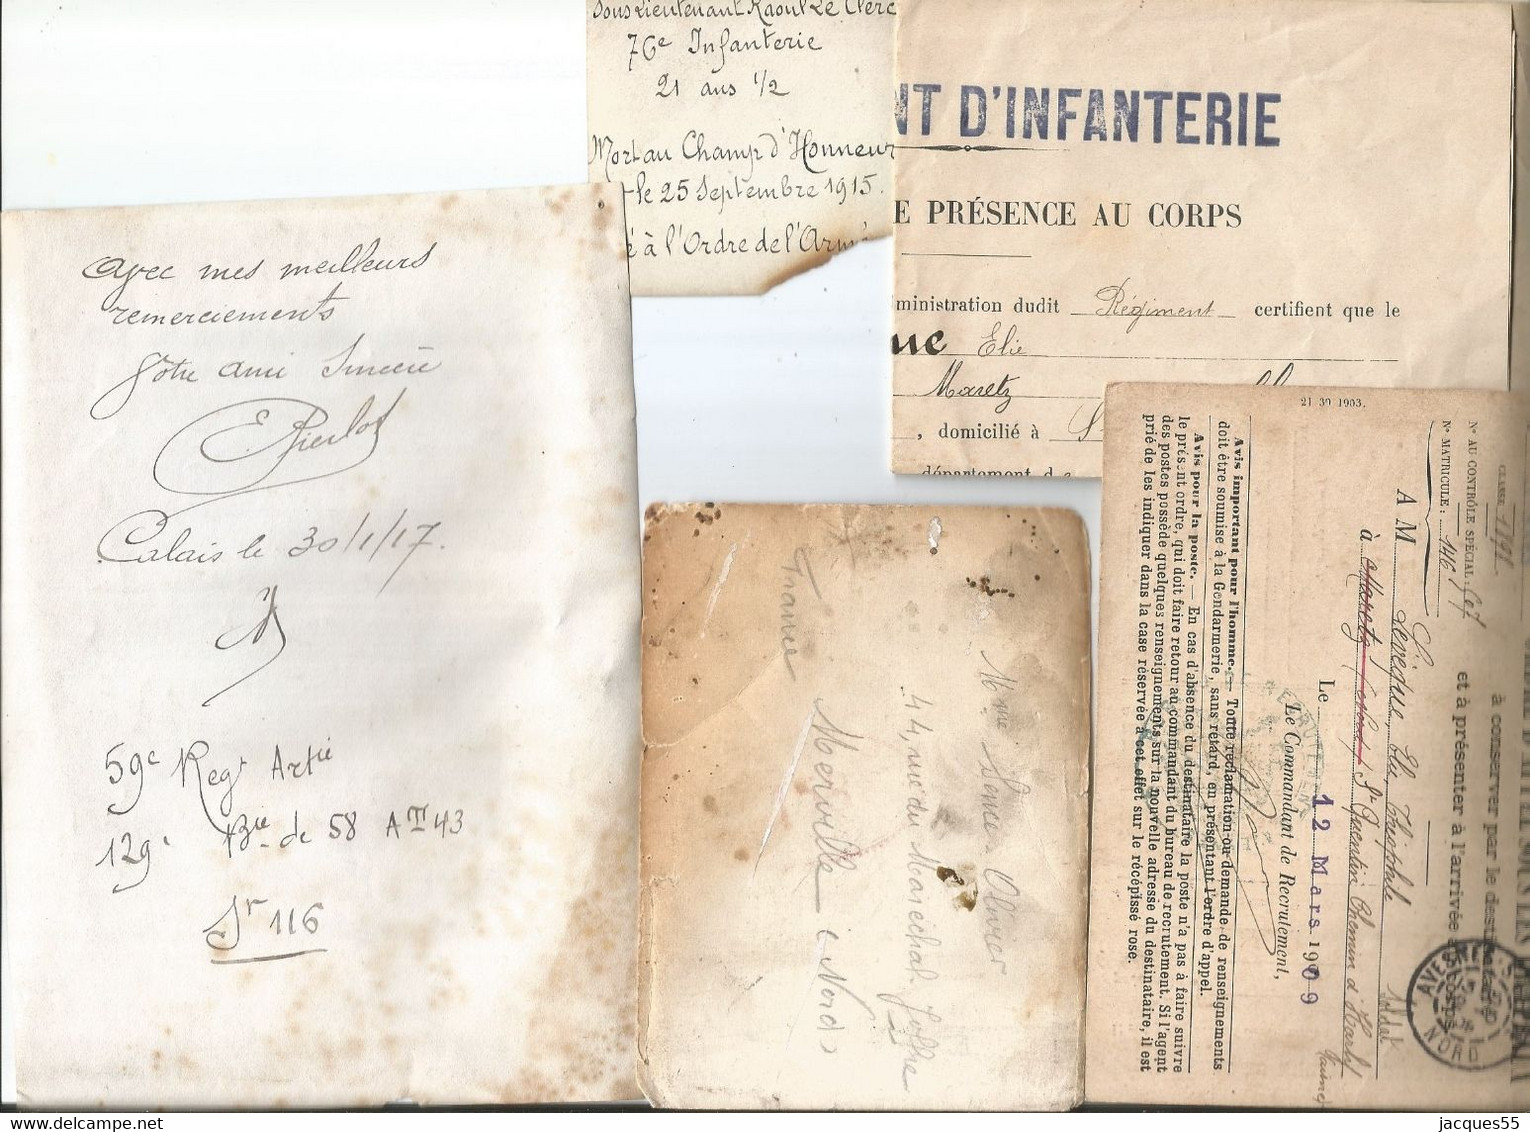 Sous Lieutenant Raoul Le Clerc
76e Infanterie
21 ans 1/2
Mort au Champ d'Honneur
le 25 Septembre 1915.
é à l'Ordre de l'Armé
NT D'INFANTERIE
E PRÉSENCE AU CORPS
ministration dudit Régiment certifient que le
ue Elie
Maretz
, domicilié à S
département d
avec mes meilleurs
remerciements
Votre ami Sincère
E Pierlot
Calais le 30/1/17.
59e Regt Artie
129e Bie de 58 ATT 43
Sr 116
Mme
Olivier
44, rue du Maréchal Joffre
Merville (Nord)
France
21 30 1903.
CLASSE
N° AU CONTRÔLE SPÉCIAL :
N° MATRICULE : 146
à conserver par le destinataire
et à présenter à l'arrivée au corps.
A M Levêque, Elie Théophile
à Maretz St Quentin Chemin d'Harly
Le 12 Mars 1909
Le Commandant de Recrutement,
Avis important pour l'homme. — Toute réclamation ou demande de renseignements
doit être soumise à la Gendarmerie, sans retard, en présentant l'ordre d'appel.
Avis pour la poste. — En cas d'absence du destinataire la poste n'a pas à faire suivre
le présent ordre, qui doit faire retour au commandant du bureau de recrutement. Si l'agent
des postes possède quelques renseignements sur la nouvelle adresse du destinataire, il est
prié de les indiquer dans la case réservée à cet effet sur le récépissé rose.
NORD
jacques55